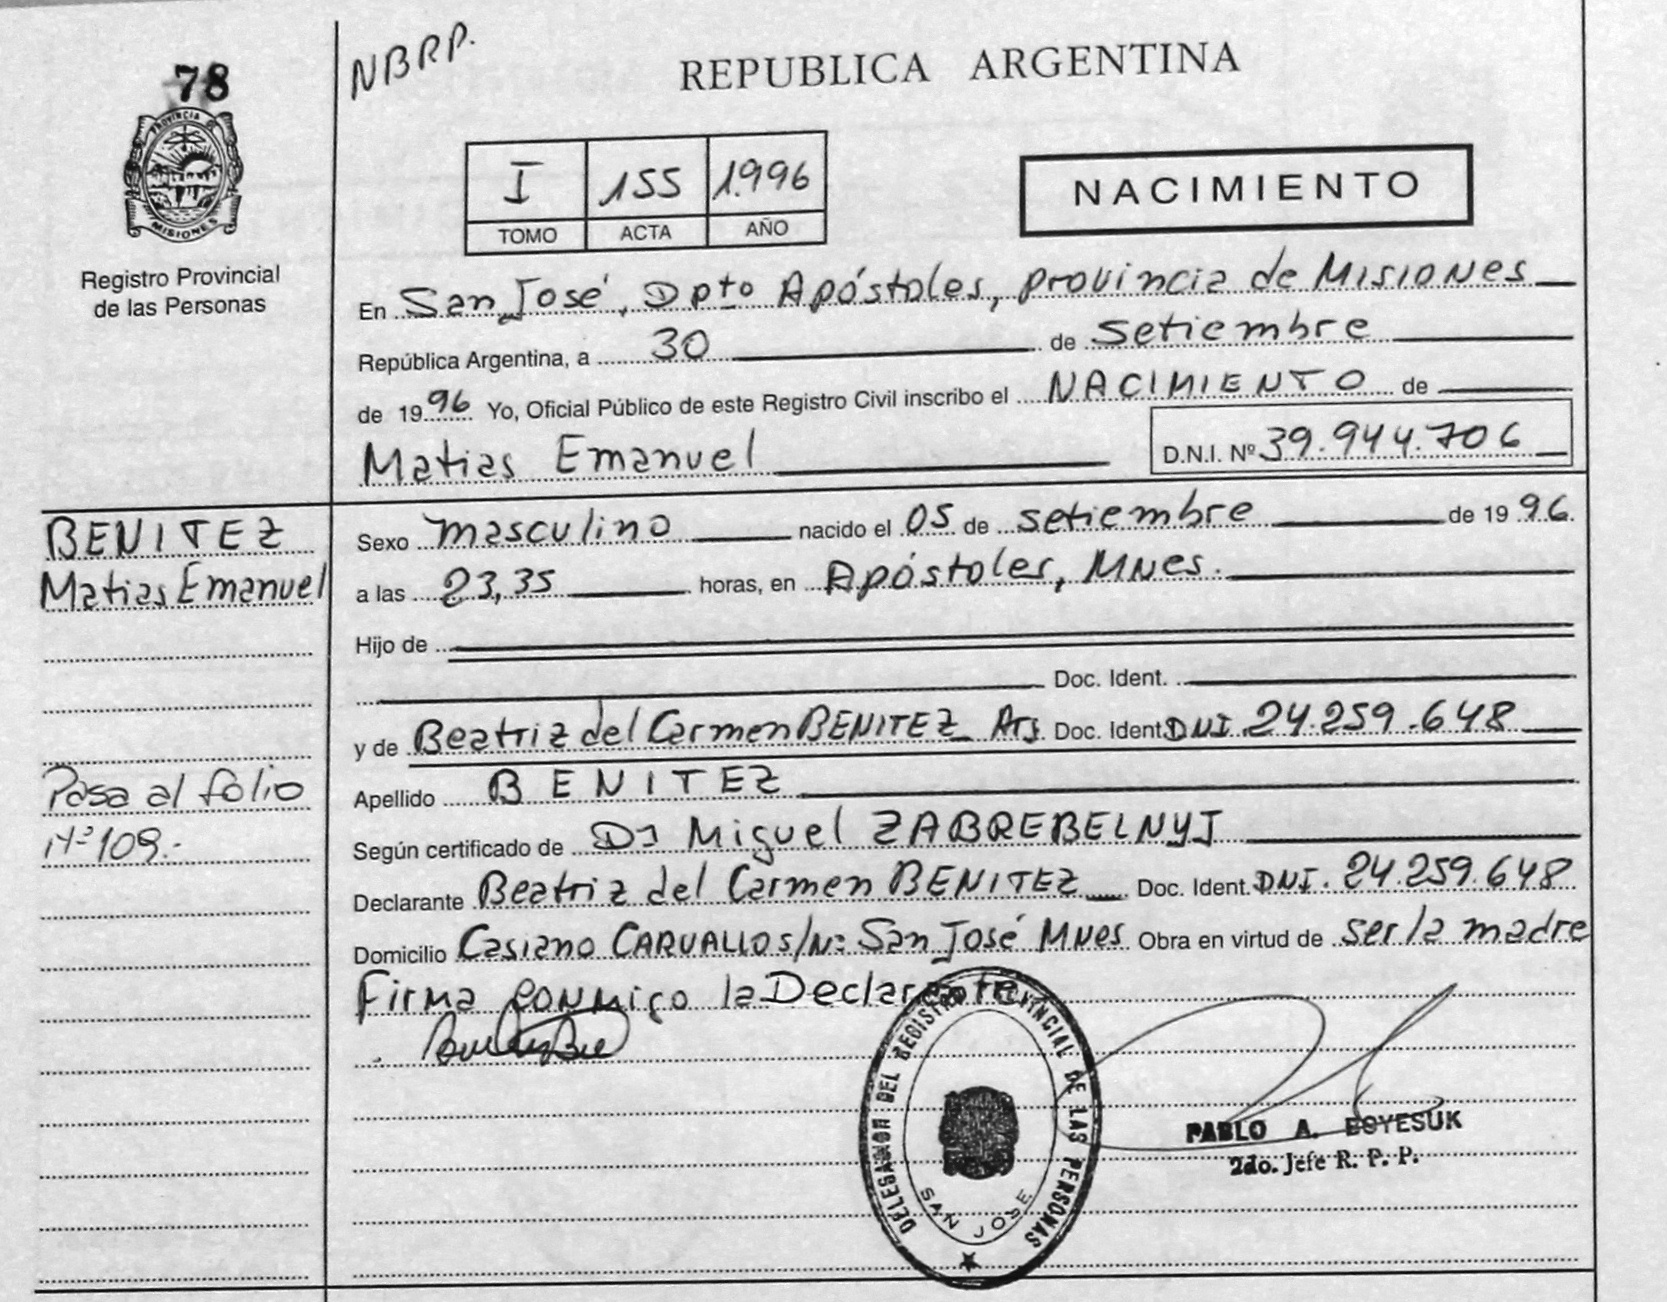 78
NBRP.
REPUBLICA ARGENTINA
PROVINCIA
MISIONES
Registro Provincial
de las Personas
I 155 1.996
TOMO ACTA AÑO
NACIMIENTO
En San José, Dpto Apóstoles, provincia de Misiones
República Argentina, a 30 de setiembre
de 1996 Yo, Oficial Público de este Registro Civil inscribo el NACIMIENTO de
Matias Emanuel D.N.I. Nº 39.944.706
BENITEZ
Matias Emanuel
Pasa al folio
Nº 109.-
Sexo masculino nacido el 05 de setiembre de 1996
a las 23,35 horas, en Apóstoles, Mnes.
Hijo de
Doc. Ident.
y de Beatriz del Carmen BENITEZ Arg. Doc. Ident DNI 24.259.648
Apellido BENITEZ
Según certificado de Dr Miguel ZABREBELNYJ
Declarante Beatriz del Carmen BENITEZ Doc. Ident. DNI. 24.259.648
Domicilio Casiano CARVALLO s/Nº San José Mnes Obra en virtud de ser la madre
Firma conmigo la Declarante.
DELEGACION DEL REGISTRO PROVINCIAL DE LAS PERSONAS
SAN JOSE
PABLO A. ESYESUK
2do. Jefe R. P. P.